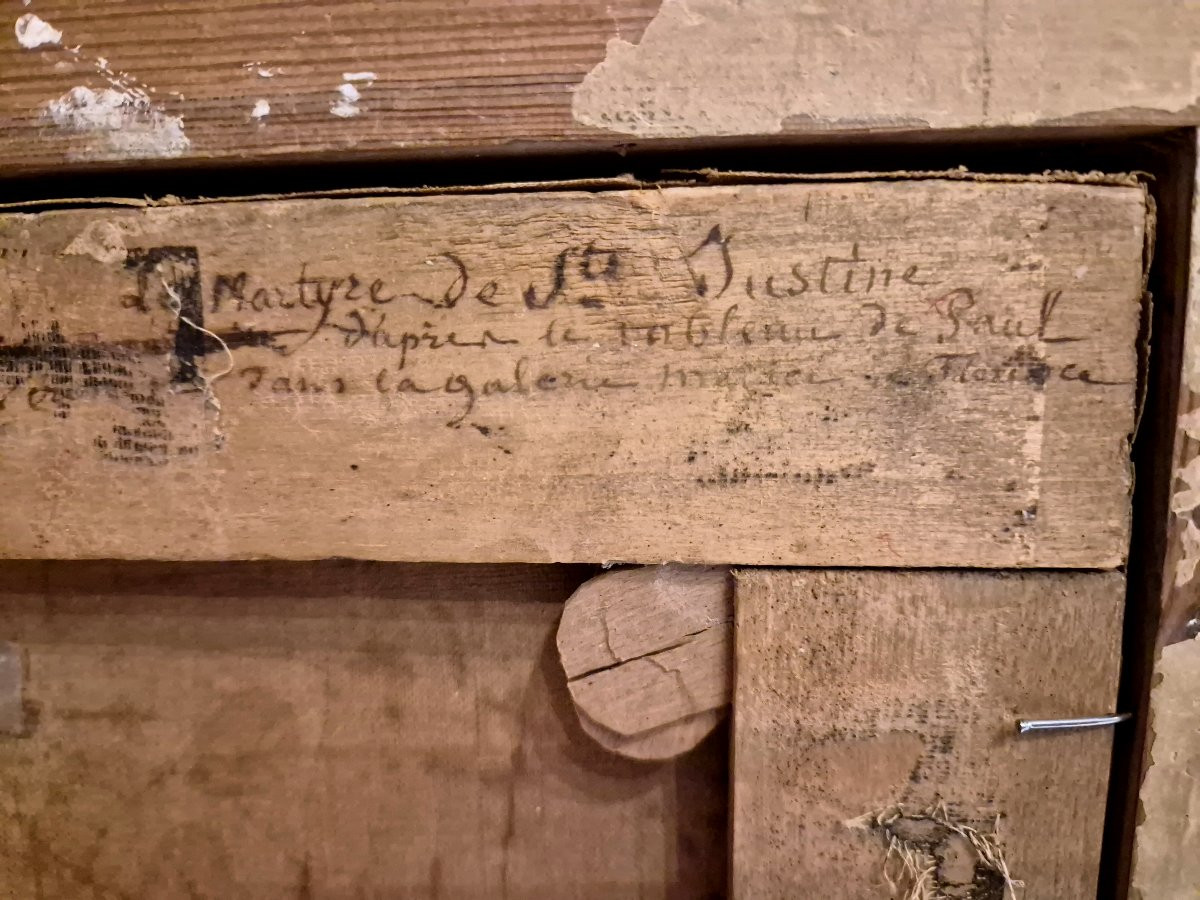 Le Martyre de Ste Justine
d'après le tableau de Paul
dans la galerie Florence